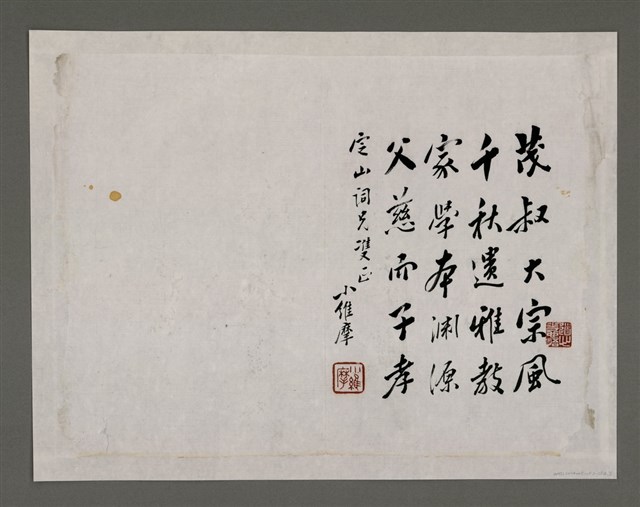 茂叔大宗風
千秋遺雅教
家學本淵源
父慈而子孝
定山詞兄雙正
小維摩
小維摩